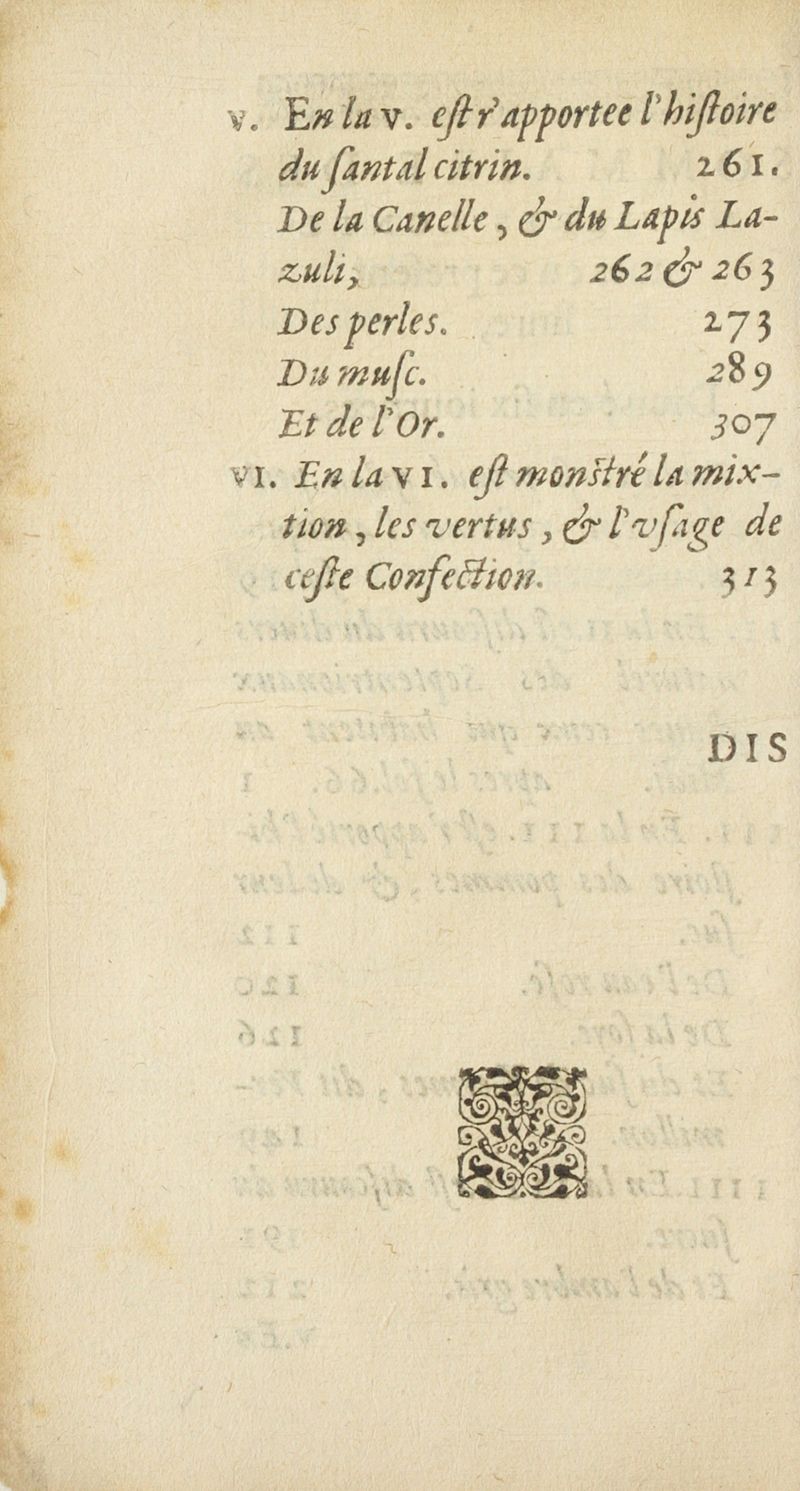 v. En la v. eſt r'apportee l'hiſtoire
du ſantal citrin. 261.
De la Canelle, & du Lapis La-
zuli, 262 & 263
Des perles. 273
Du muſc. 289
Et de l'Or. 307
vi. En la vi. eſt monſtré la mix-
tion, les vertus, & l'vſage de
ceſte Confection. 313
DIS